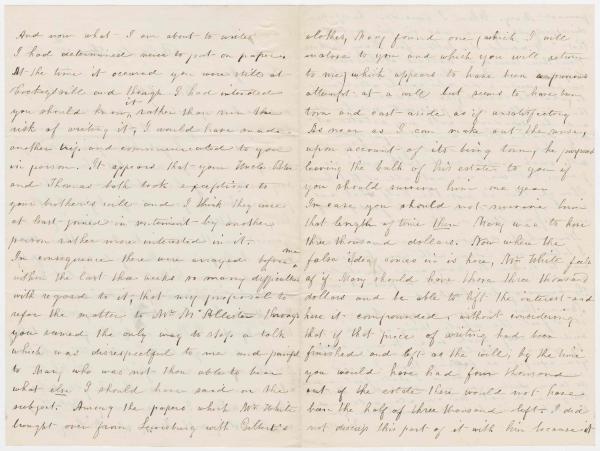 And now what I am about to write
I had determined never to put on paper.
At the time it occured you were still at
Cockeysville and though I had intended
you should know it, rather than run the
risk of writing it, I would have made
another trip and communicated to you
in person. It appears that your Uncle
and Thomas both took exceptions to
your brother's will and I think they were
at least joined in sentiment by another
person rather more interested in it.
In consequence there were arrayed before me
within the last two weeks so many difficulties
with regard to it, that my proposal to
refer the matter to Mr McAllister through
you seemed the only way to stop a talk
which was disrespectful to me and painful
to Mary who was not then able to hear
what else I should have said on the
subject. Among the papers which Mr White
brought over from Lewisburg with Gilbert's
clothes, Mary found one (which I will
enclose to you and which you will return
to me) which appears to have been a previous
attempt at a will but seems to have been
torn and cast aside as if unsatisfactory.
As near as I can make out the sense,
upon account of its being torn, he purposed
leaving the bulk of his estate to you if
you should survive him one year.
In case you should not survive him
that length of time then Mary was to have
three thousand dollars. Now where the
false idea comes in is here, Mr White feels
as if Mary should have those three thousand
dollars and be able to lift the interest and
have it compounded, without considering
that if that piece of writing had been
finished and left as the will, by the time
you would have had four thousand
out of the estate there would not have
been the half of three thousand left. I did
not discuss this part of it with him because it